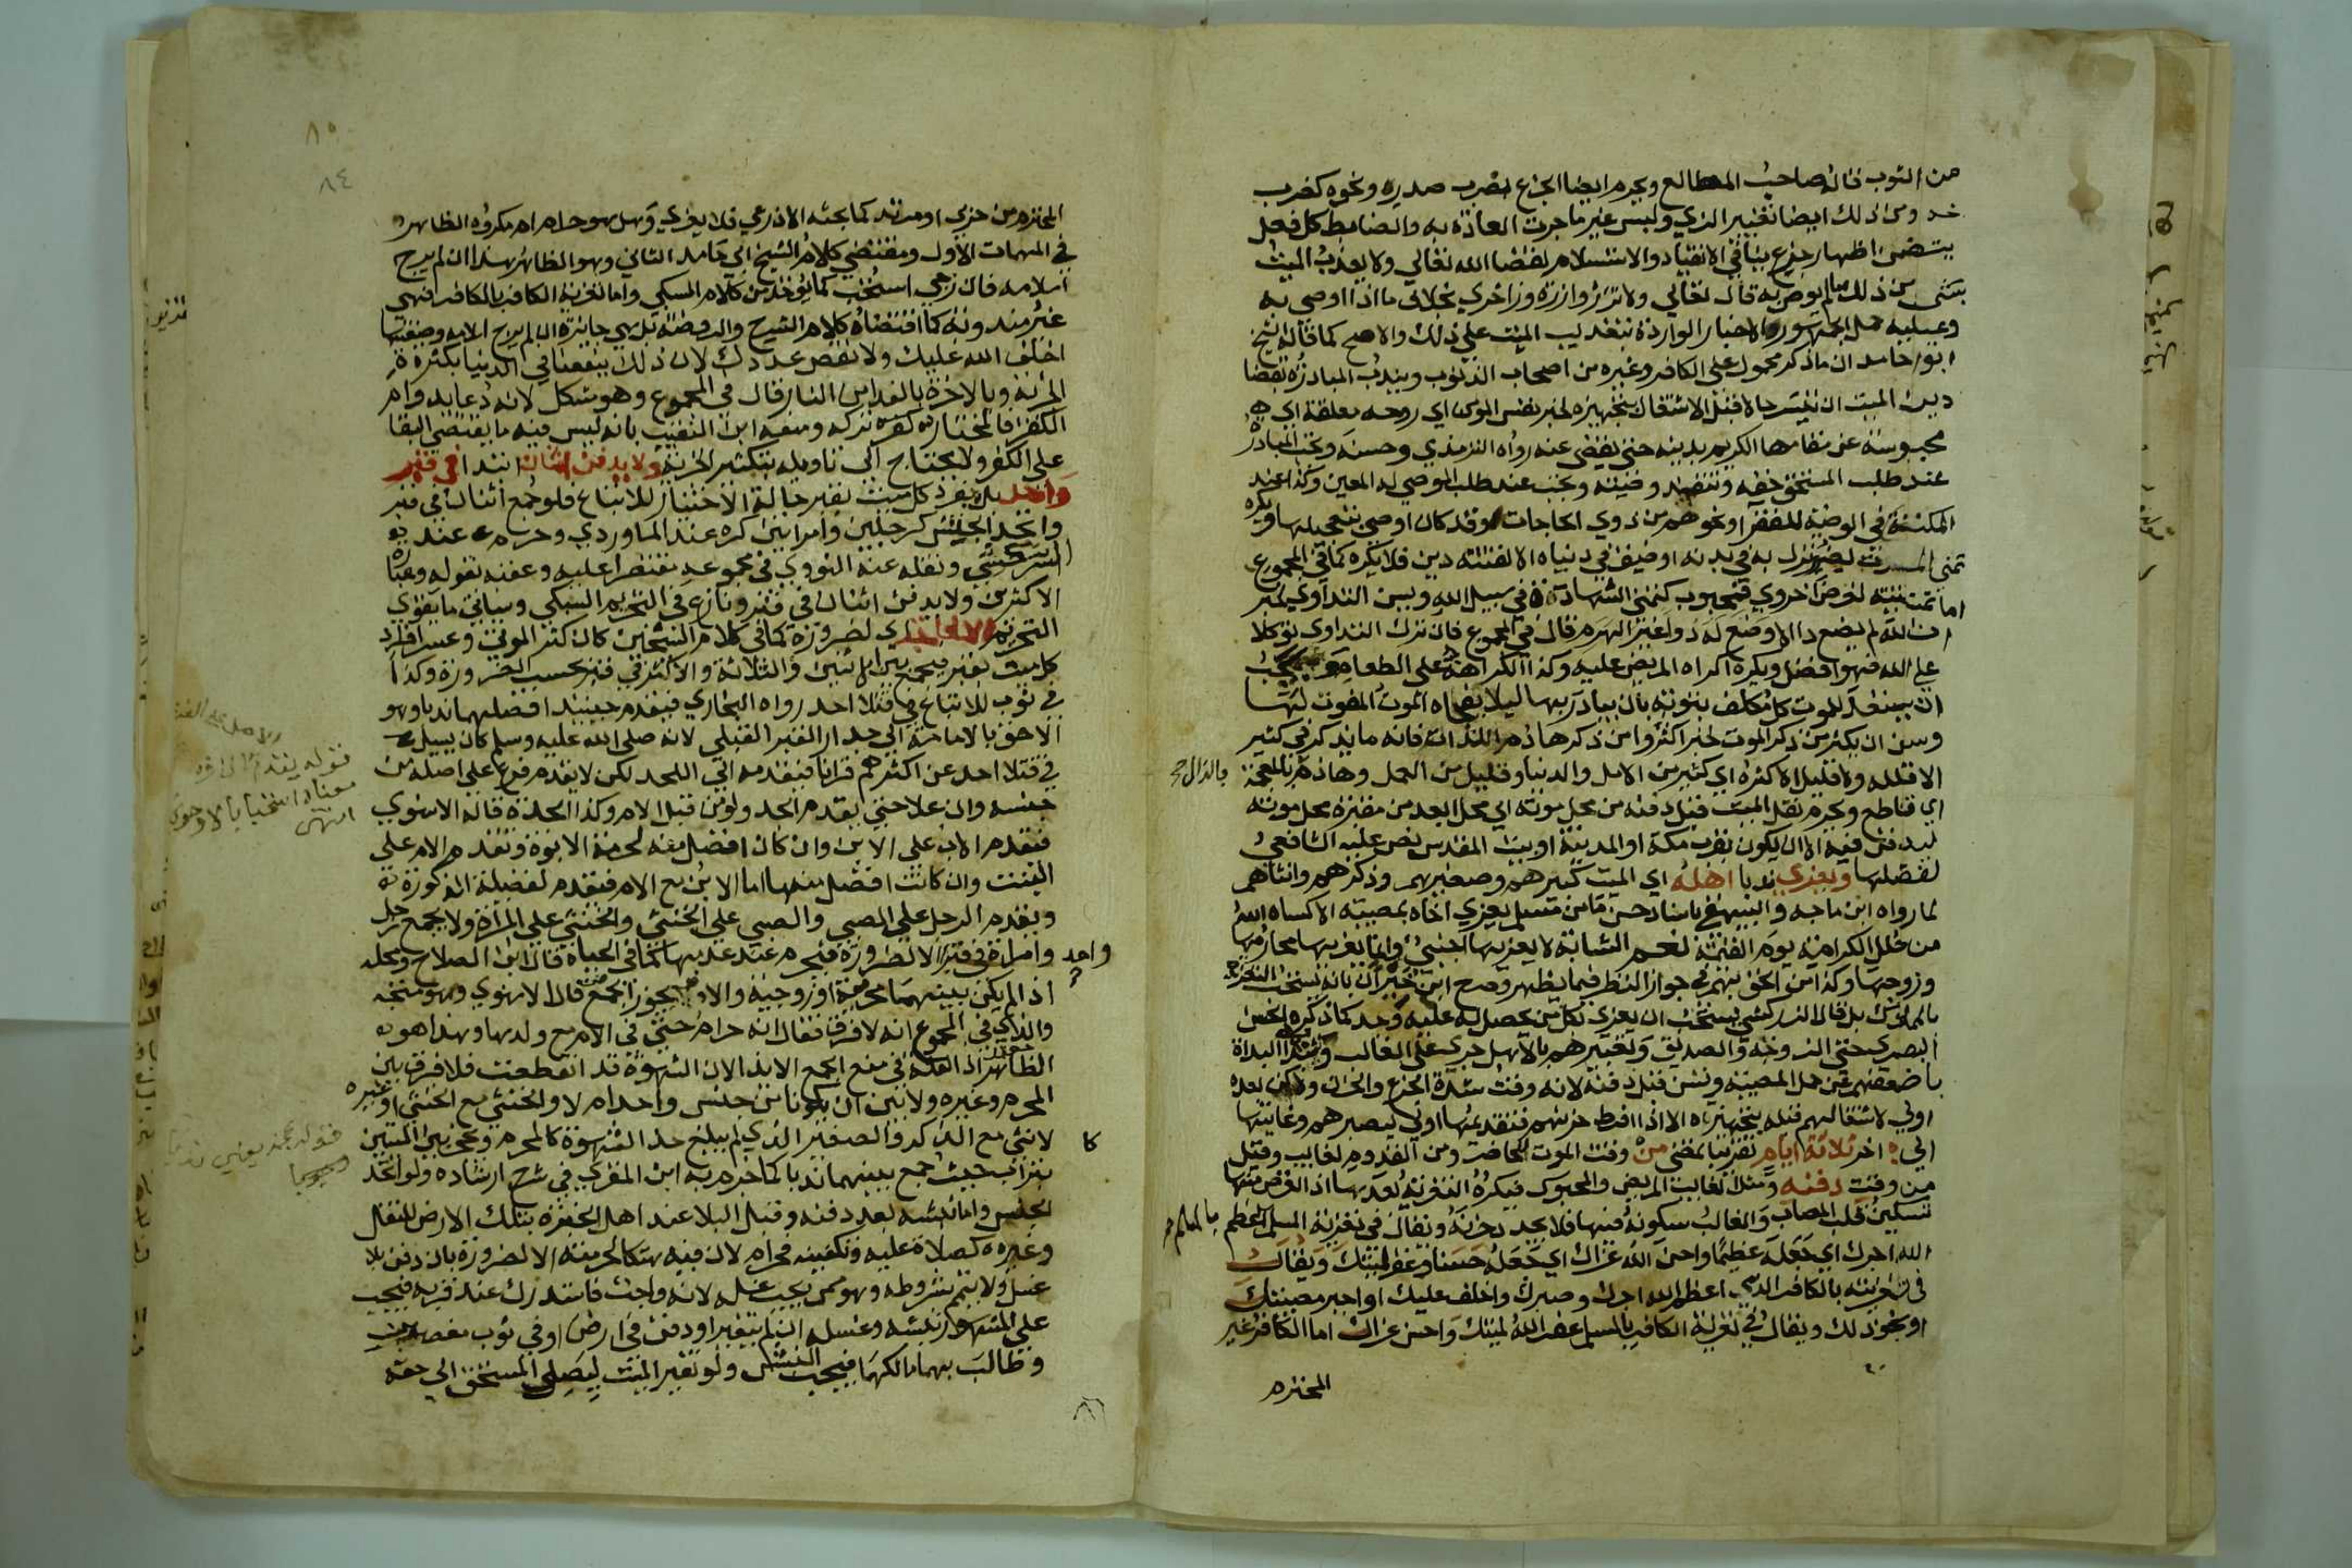 من الثوب قاله صاحب المطالع ويحرم ايضا الجزع بضرب صدره ونحوه كضرب
خد ومن ذلك ايضا تغيير الزي ولبس غير ما جرت العادة به والضابط كل فعل
يتضمن اظهار جزع ينافي الانقياد والاستسلام لقضا الله تعالى ولا يعذب الميت
بشي من ذلك ما لم يوص به قال تعالي ولا تزر وازرة وزر اخري بخلاف ما اذا اوصي به
وعليه حمل الجمهور الاخبار الواردة بتعذيب الميت علي ذلك والاصح كما قاله الشيخ
ابو حامد ان ما ذكر محمول على الكافر وغيره من اصحاب الذنوب ويندب المبادرة بقضا
دين الميت ان تيسر حالا قبل الاشتغال بتجهيزه لخبر نفس المومن اي روحه معلقة اي
محبوسة عن مقامها الكريم بدينه حتي يقضي عنه رواه الترمذي وحسنه وتجب المبادرة
عند طلب المستحق حقه وتنفيذ وصيته وتجب عند طلب الموصي له المعين وكذا عند
المكنة في الوصية للفقرا ونحوهم من ذوي الحاجات او كان اوصي بتعجيلها ويكره
تمني الموت لضر نزل به في بدنه او ضيق في دنياه الا لفتنة دين فلا يكره كما في المجموع
اما تمنيه لغرض اخروي فمحبوب كتمني الشهادة في سبيل الله ويسن التداوي لخبر
ان الله لم يضع دا الا وضع له دوا غير الهرم قال في المجموع فان ترك التداوي توكلا
علي الله فهو افضل ويكره اكراه المريض عليه وكذا اكراهه على الطعام ويجب
ان يستعد للموت كل مكلف بتوبة بان يبادر بها ليلا يفجاه الموت المفوت لها
وسن ان يكثر من ذكر الموت لخبر اكثروا من ذكر هاذم اللذات فانه ما يذكر في كثير
الا قلله ولا قليل الا كثره اي كثير من الامل والدنيا وقليل من العمل وهاذم بالمعجمة
بالذال صح
اي قاطع ويحرم نقل الميت قبل دفنه من محل موته الي محل ابعد من مقبرة محل موته
ليدفن فيه الا ان يكون بقرب مكة او المدينة او بيت المقدس نص عليه الشافعي
لفضلها ويعزي ندبا اهله اي الميت كبيرهم وصغيرهم وذكرهم وانثاهم
لما رواه ابن ماجه والبيهقي باسناد حسن ما من مسلم يعزي اخاه بمصيبة الا كساه الله
من حلل الكرامة يوم القيمة نعم الشابة لا يعزيها اجنبي وانما يعزيها محارمها
وزوجها وكذا من الحق بهم في جواز النظر فيما يظهر وصرح ابن خيران بانه يستحب التعزية
بالمملوك بل قال الزركشي يستحب ان يعزي بكل من يحصل له عليه وجد كما ذكره الحسن
البصري حتي الزوجة والصديق وتعبيرهم بالاهل جري علي الغالب ويندب البداة
باضعفهم عن حمل المصيبة وتسن قبل دفنه لانه وقت شدة الجزع والحزن ولكن بعده
اولي لاشتغالهم قبله بتجهيزه الا اذا افرط حزنهم فتقديمها اولي ليصبرهم وغايتها
الي اخر ثلاثة ايام تقريبا تمضي من وقت الموت لحاضر ومن القدوم لغايب وقيل
من وقت دفنه ومثل الغايب المريض والمحبوس فتكره التعزية بعدها اذ الغرض منها
تسكين قلب المصاب والغالب سكونه فيها فلا يجدد حزنه ويقال في تعزية المسلم اعظم
بالمسلم صح
الله اجرك اي جعله عظيما واحسن الله عزاك اي جعله حسنا وغفر لميتك ويقال
في تعزيته بالكافر الذمي اعظم الله اجرك وصبرك واخلف عليك او اجبر مصيبتك
او نحو ذلك ويقال في تعزية الكافر بالمسلم غفر الله لميتك واحسن عزاك اما الكافر غير
المحترم
٨٥
٨٤
المحترم من حربي او مرتد كما بحثه الاذرعي فلا يعزي وهل هو حرام ام مكروه الظاهر
في المهمات الاول ومقتضي كلام الشيخ ابي حامد الثاني وهو الظاهر هذا ان لم يرج
اسلامه فان رجي استحب كما يوخذ من كلام السبكي واما تعزية الكافر بالكافر فهي
غير مندوبة كما اقتضاه كلام الشرح والروضة بل هي جايزة ان لم يرج اسلامه وصيغتها
اخلف الله عليك ولا نقص عددك لان ذلك ينفعنا في الدنيا بكثرة
الجزية وبالاخرة بالفدا من النار قال في المجموع وهو مشكل لانه دعا بدوام
الكفر فالمختار تركه ومنعه ابن النقيب بانه ليس فيه ما يقتضي البقا
علي الكفر ولا يحتاج الي تاويله بتكثير الجزية ولا يدفن اثنان ابتدا في قبر
واحد بل يفرد كل ميت بقبر حالة الاختيار للاتباع فلو جمع اثنان في قبر
واتحد الجنس كرجلين وامراتين كره عند الماوردي وحرم عند
السرخسي ونقله عنه النووي في مجموعه مقتصرا عليه وعقبه بقوله وعبارة
الاكثرين ولا يدفن اثنان في قبر ونازع في التحريم السبكي وسياتي ما يقوي
التحريم الا لحاجة اي لضرورة كما في كلام الشيخين كان كثر الموتي وعسر افراد
كل ميت بقبر فيجمع بين الاثنين والثلاثة والاكثر في قبر بحسب الضرورة وكذا
في ثوب للاتباع في قتلا احد رواه البخاري فيقدم حينيذ افضلهما ندبا وهو
الاحق بالامامة الي جدار القبر القبلي لانه صلى الله عليه وسلم كان يسيل
في قتلا احد عن اكثرهم قرانا فيقدمه الي اللحد لكن لا يقدم فرع علي اصله من
جنسه وان علا حتي يقدم الجد ولو من قبل الام وكذا الجدة قاله الاسنوي
فيقدم الاب علي الابن وان كان افضل منه لحرمة الابوة وتقدم الام علي
البنت وان كانت افضل منها اما الابن مع الام فيقدم لفضيلة الذكورة
ويقدم الرجل علي الصبي والصبي علي الخنثي والخنثي علي المراة ولا يجمع رجل
وامراة في قبر الا لضرورة فيحرم عند عدمها كما في الحياة قال ابن الصلاح ومحله
واحد
اذا لم يكن بينهما محرمية او زوجية والا فيجوز الجمع قال الاسنوي وهو متجه
والذي في المجموع انه لا فرق فقال انه حرام حتي في الام مع ولدها وهذا هو
الظاهر اذ العلة في منع الجمع الايذا لان الشهوة قد انقطعت فلا فرق بين
المحرم وغيره ولا بين ان يكونا من جنس واحد ام لا والخنثي مع الخنثي او غيره
كا
لانثي مع الذكر والصغير الذي لم يبلغ حد الشهوة كالمحرم ويحجز بين الميتين
بتراب حيث جمع بينهما ندبا كما جزم به ابن المقري في شرح ارشاده ولو اتحد
الجنس واما نبشه بعد دفنه وقبل البلا عند اهل الخبرة بتلك الارض للنقل
وغيره كصلاة عليه وتكفينه فحرام لان فيه هتكا لحرمته الا لضرورة بان دفن بلا
غسل ولا تيمم بشرطه وهو ممن يجب غسله لانه واجب فاستدرك عند قربه فيجب
علي المشهور نبشه وغسله ان لم يتغير او دفن في ارض او في ثوب مغصوبين
وطالب بهما مالكهما فيجب النبش ولو تغير الميت ليصل المستحق الي حقه
قوله يقدم الي اخره